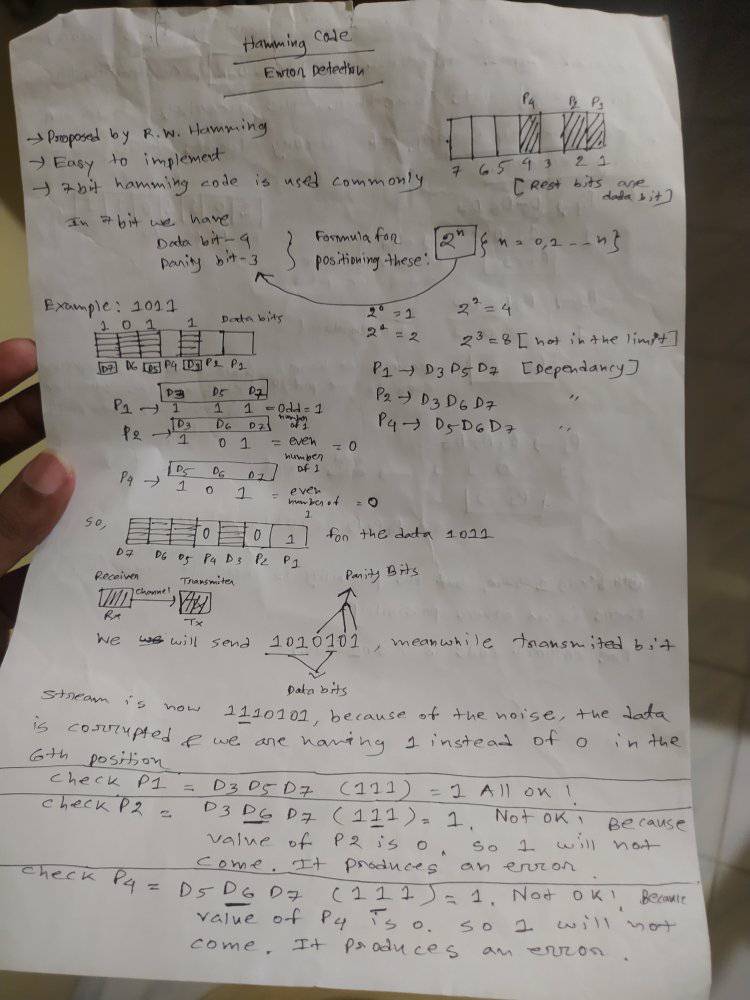 Hamming Code
Error Detection
P4 P2 P1
7 6 5 4 3 2 1
[Rest bits are data bit]
→ Proposed by R.W. Hamming
→ Easy to implement
→ 7bit hamming code is used commonly
In 7bit we have
Data bit-4
Parity bit-3
Formula for positioning these: 2ⁿ { n = 0,2 --- n}
Example: 1011
1 0 1 1 Data bits
D7 D6 D5 P4 D3 P2 P1
2⁰ = 1 2² = 4
2¹ = 2 2³ = 8 [not in the limit]
P1 → D3 D5 D7 [Dependancy]
P2 → D3 D6 D7 "
P4 → D5 D6 D7 "
D3 D5 D7
P1 → 1 1 1 = Odd number of 1 = 1
D3 D6 D7
P2 → 1 0 1 = even number of 1 = 0
D5 D6 D7
P4 → 1 0 1 = even number of 1 = 0
So, 0 0 1 for the data 1011
D7 D6 D5 P4 D3 P2 P1
Receiver Channel Transmiter
Rx Tx
Parity Bits
We will send 1010101, meanwhile transmited bit
Data bits
stream is now 1110101, because of the noise, the data
is corrupted & we are having 1 instead of 0 in the
6th position
check P1 = D3 D5 D7 (111) = 1 All ok!
check P2 = D3 D6 D7 (111) = 1. Not ok! Because
value of P2 is 0. so 1 will not
come. It produces an error.
check P4 = D5 D6 D7 (111) = 1. Not ok! Because
value of P4 is 0. so 1 will not
come. It produces an error.